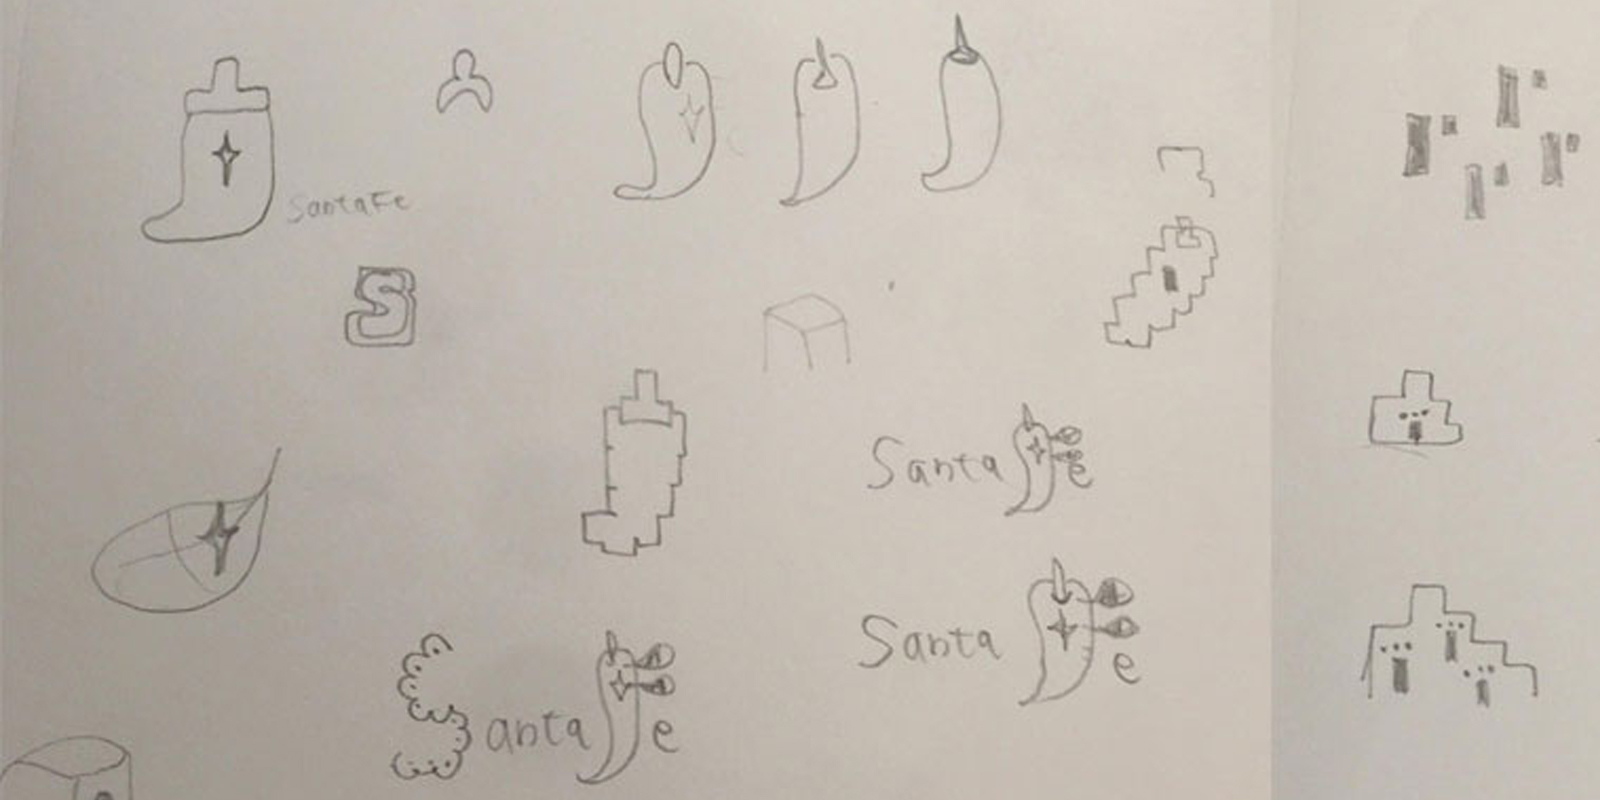 Santa Fe
S
Santa Fe
Santa Fe
Santa Fe